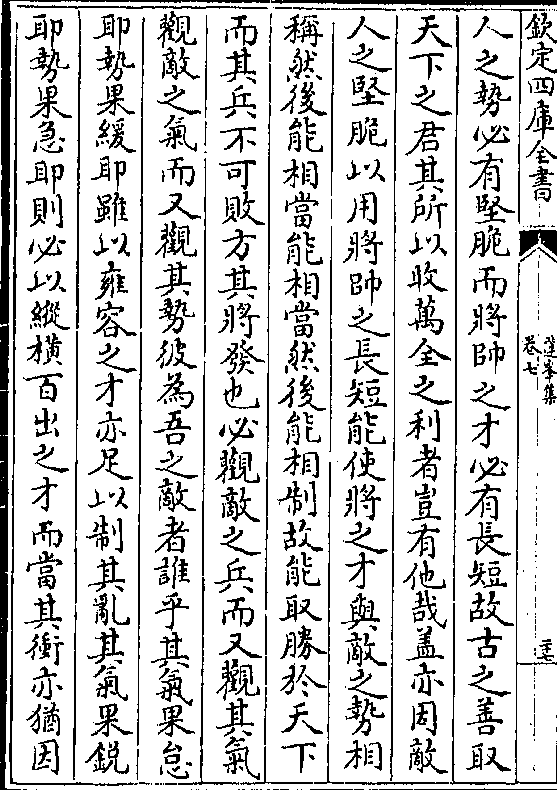 欽定四庫全書
蓮峯集
卷七
人之勢必有堅脆而將帥之才必有長短故古之善取
天下之君其所以收萬全之利者豈有他哉盖亦因敵
人之堅脆以用將帥之長短能使將之才與敵之勢相
稱然後能相當能相當然後能相制故能取勝於天下
而其兵不可敗方其將發也必觀敵之兵而又觀其氣
觀敵之氣而又觀其勢彼為吾之敵者誰乎其氣果怠
耶勢果緩耶雖以雍容之才亦足以制其亂其氣果鋭
耶勢果急耶則必以縱橫百出之才而當其衝亦猶因